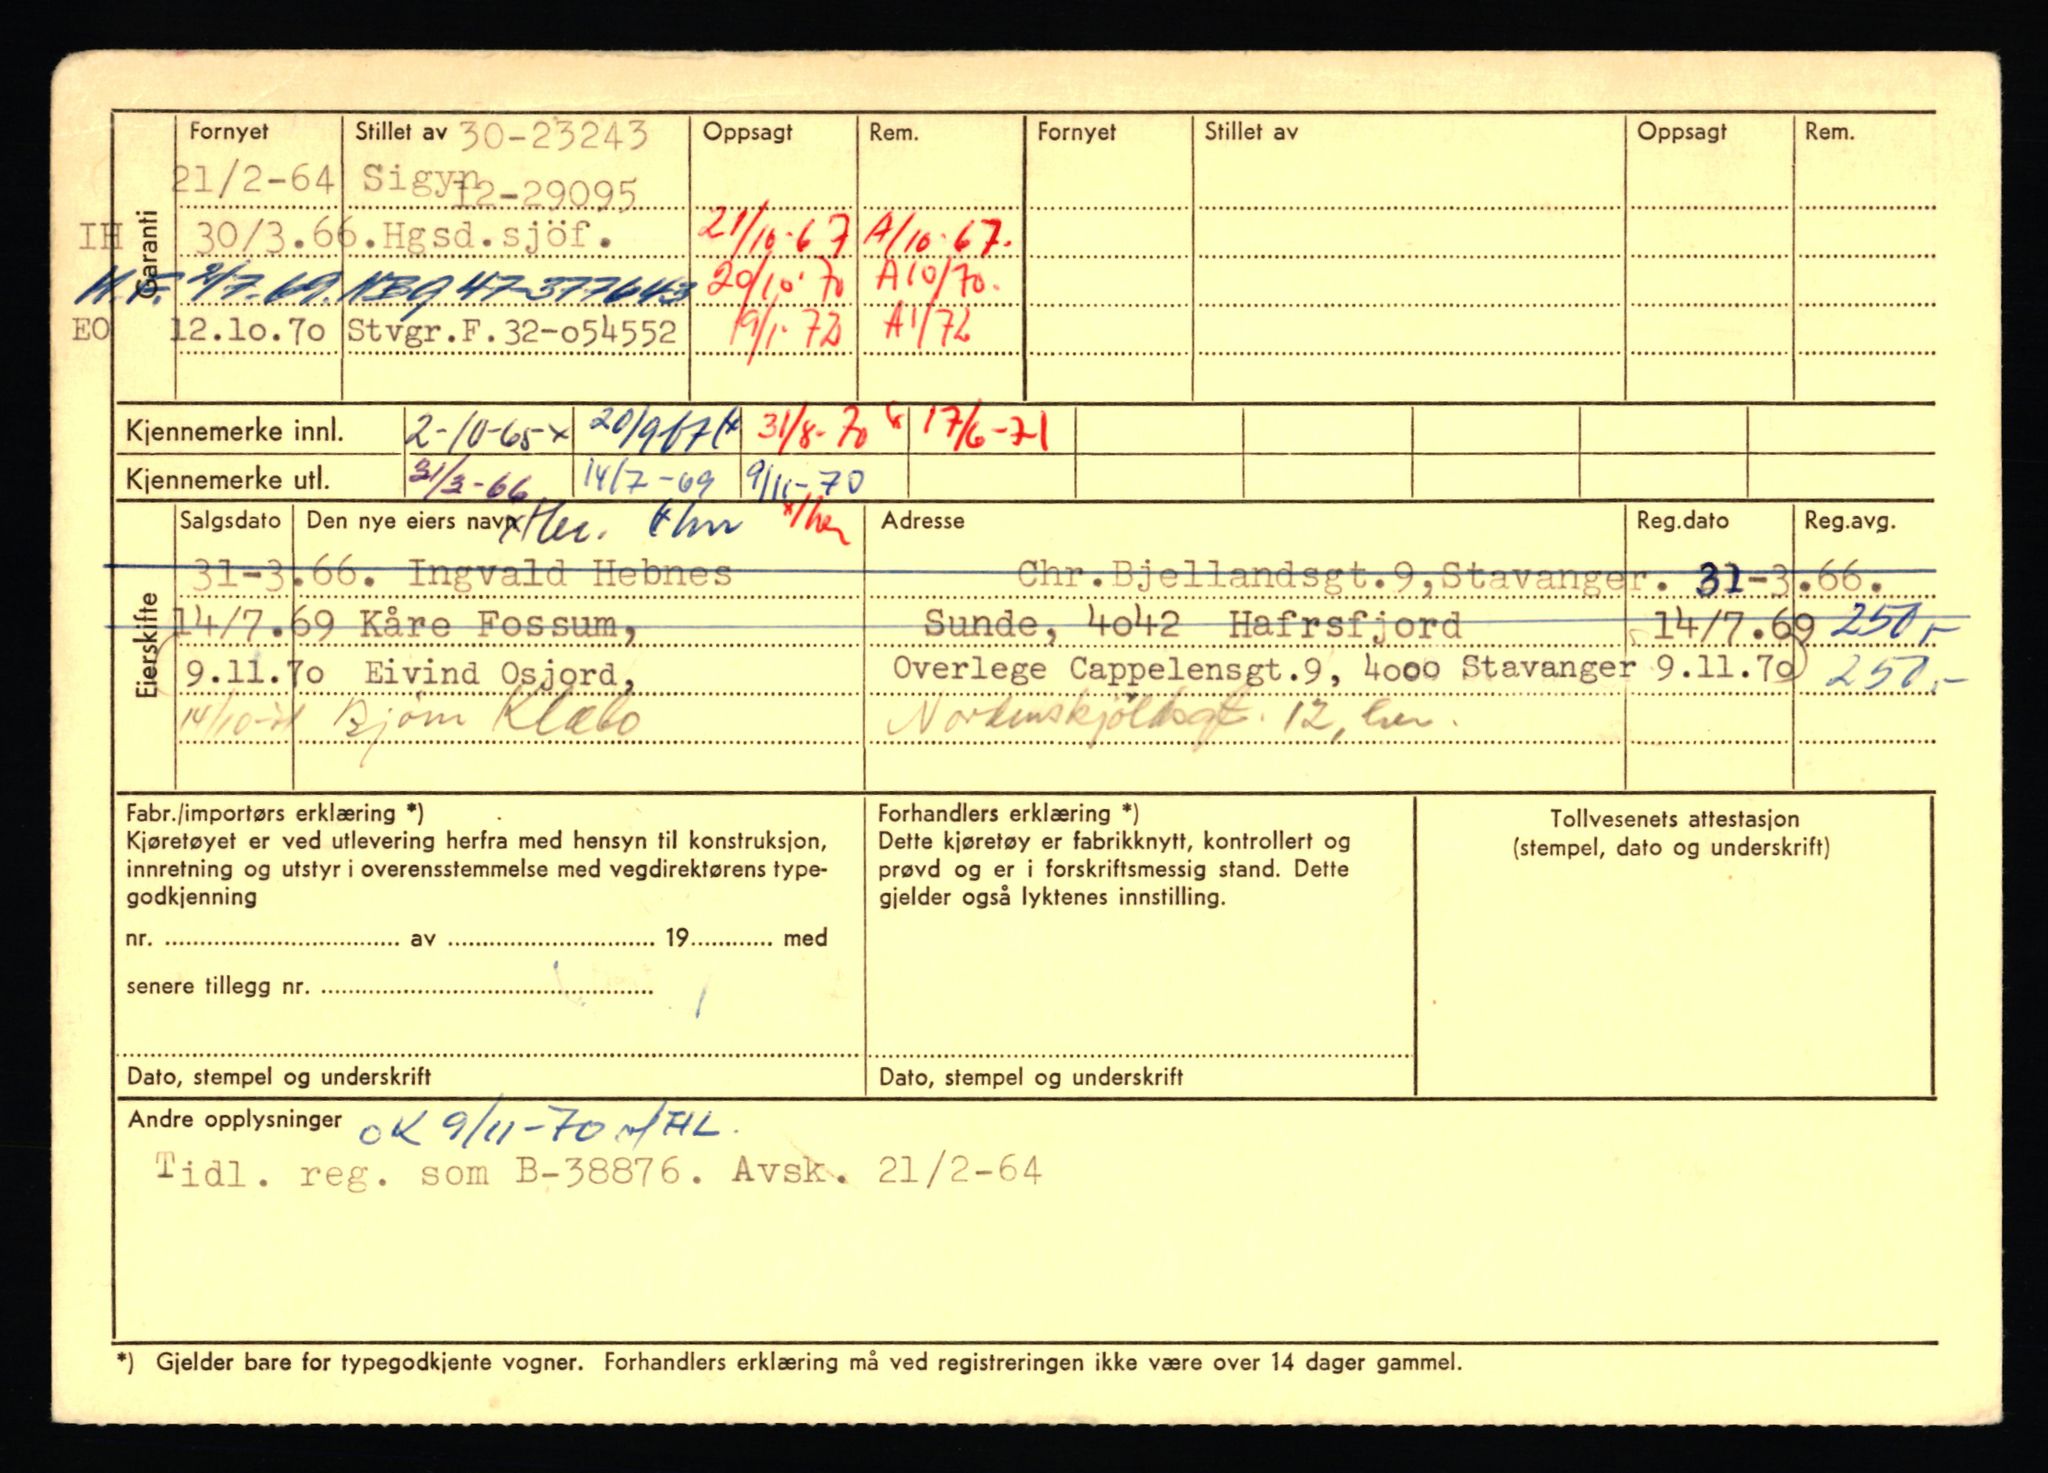 Garanti
Fornyet Stillet av 30-23243 Oppsagt Rem. Fornyet Stillet av Oppsagt Rem.
21/2-64 Sigyn 12-29095
IH 30/3.66. Hgsd.sjöf. 21/10-67 A/10-67.
2/7-69. NBG 47-377643 20/10-70 A10/70.
EO 12.10.70 Stvgr.F.32-054552 19/1-72 A1/72
Kjennemerke innl. 2-10-65x 20/9-67 31/8-70 17/6-71
Kjennemerke utl. 31/3-66 14/7-69 9/11-70
Eierskifte
Salgsdato Den nye eiers navn Adresse Reg.dato Reg.avg.
31-3.66. Ingvald Hebnes Chr.Bjellandsgt.9,Stavanger. 31-3.66.
14/7.69 Kåre Fossum, Sunde, 4042 Hafrsfjord 14/7.69 250,-
9.11.70 Eivind Osjord, Overlege Cappelensgt.9, 4000 Stavanger 9.11.70 250,-
14/10-71 Bjørn Klæbo Nordenskjöldsgt. 12, her.
Fabr./importørs erklæring *)
Kjøretøyet er ved utlevering herfra med hensyn til konstruksjon,
innretning og utstyr i overensstemmelse med vegdirektørens type-
godkjenning
nr. .......... av .......... 19.......... med
senere tillegg nr. ..........
Dato, stempel og underskrift
Forhandlers erklæring *)
Dette kjøretøy er fabrikknytt, kontrollert og
prøvd og er i forskriftsmessig stand. Dette
gjelder også lyktenes innstilling.
Dato, stempel og underskrift
Tollvesenets attestasjon
(stempel, dato og underskrift)
Andre opplysninger OK 9/11-70
Tidl. reg. som B-38876. Avsk. 21/2-64
*) Gjelder bare for typegodkjente vogner. Forhandlers erklæring må ved registreringen ikke være over 14 dager gammel.